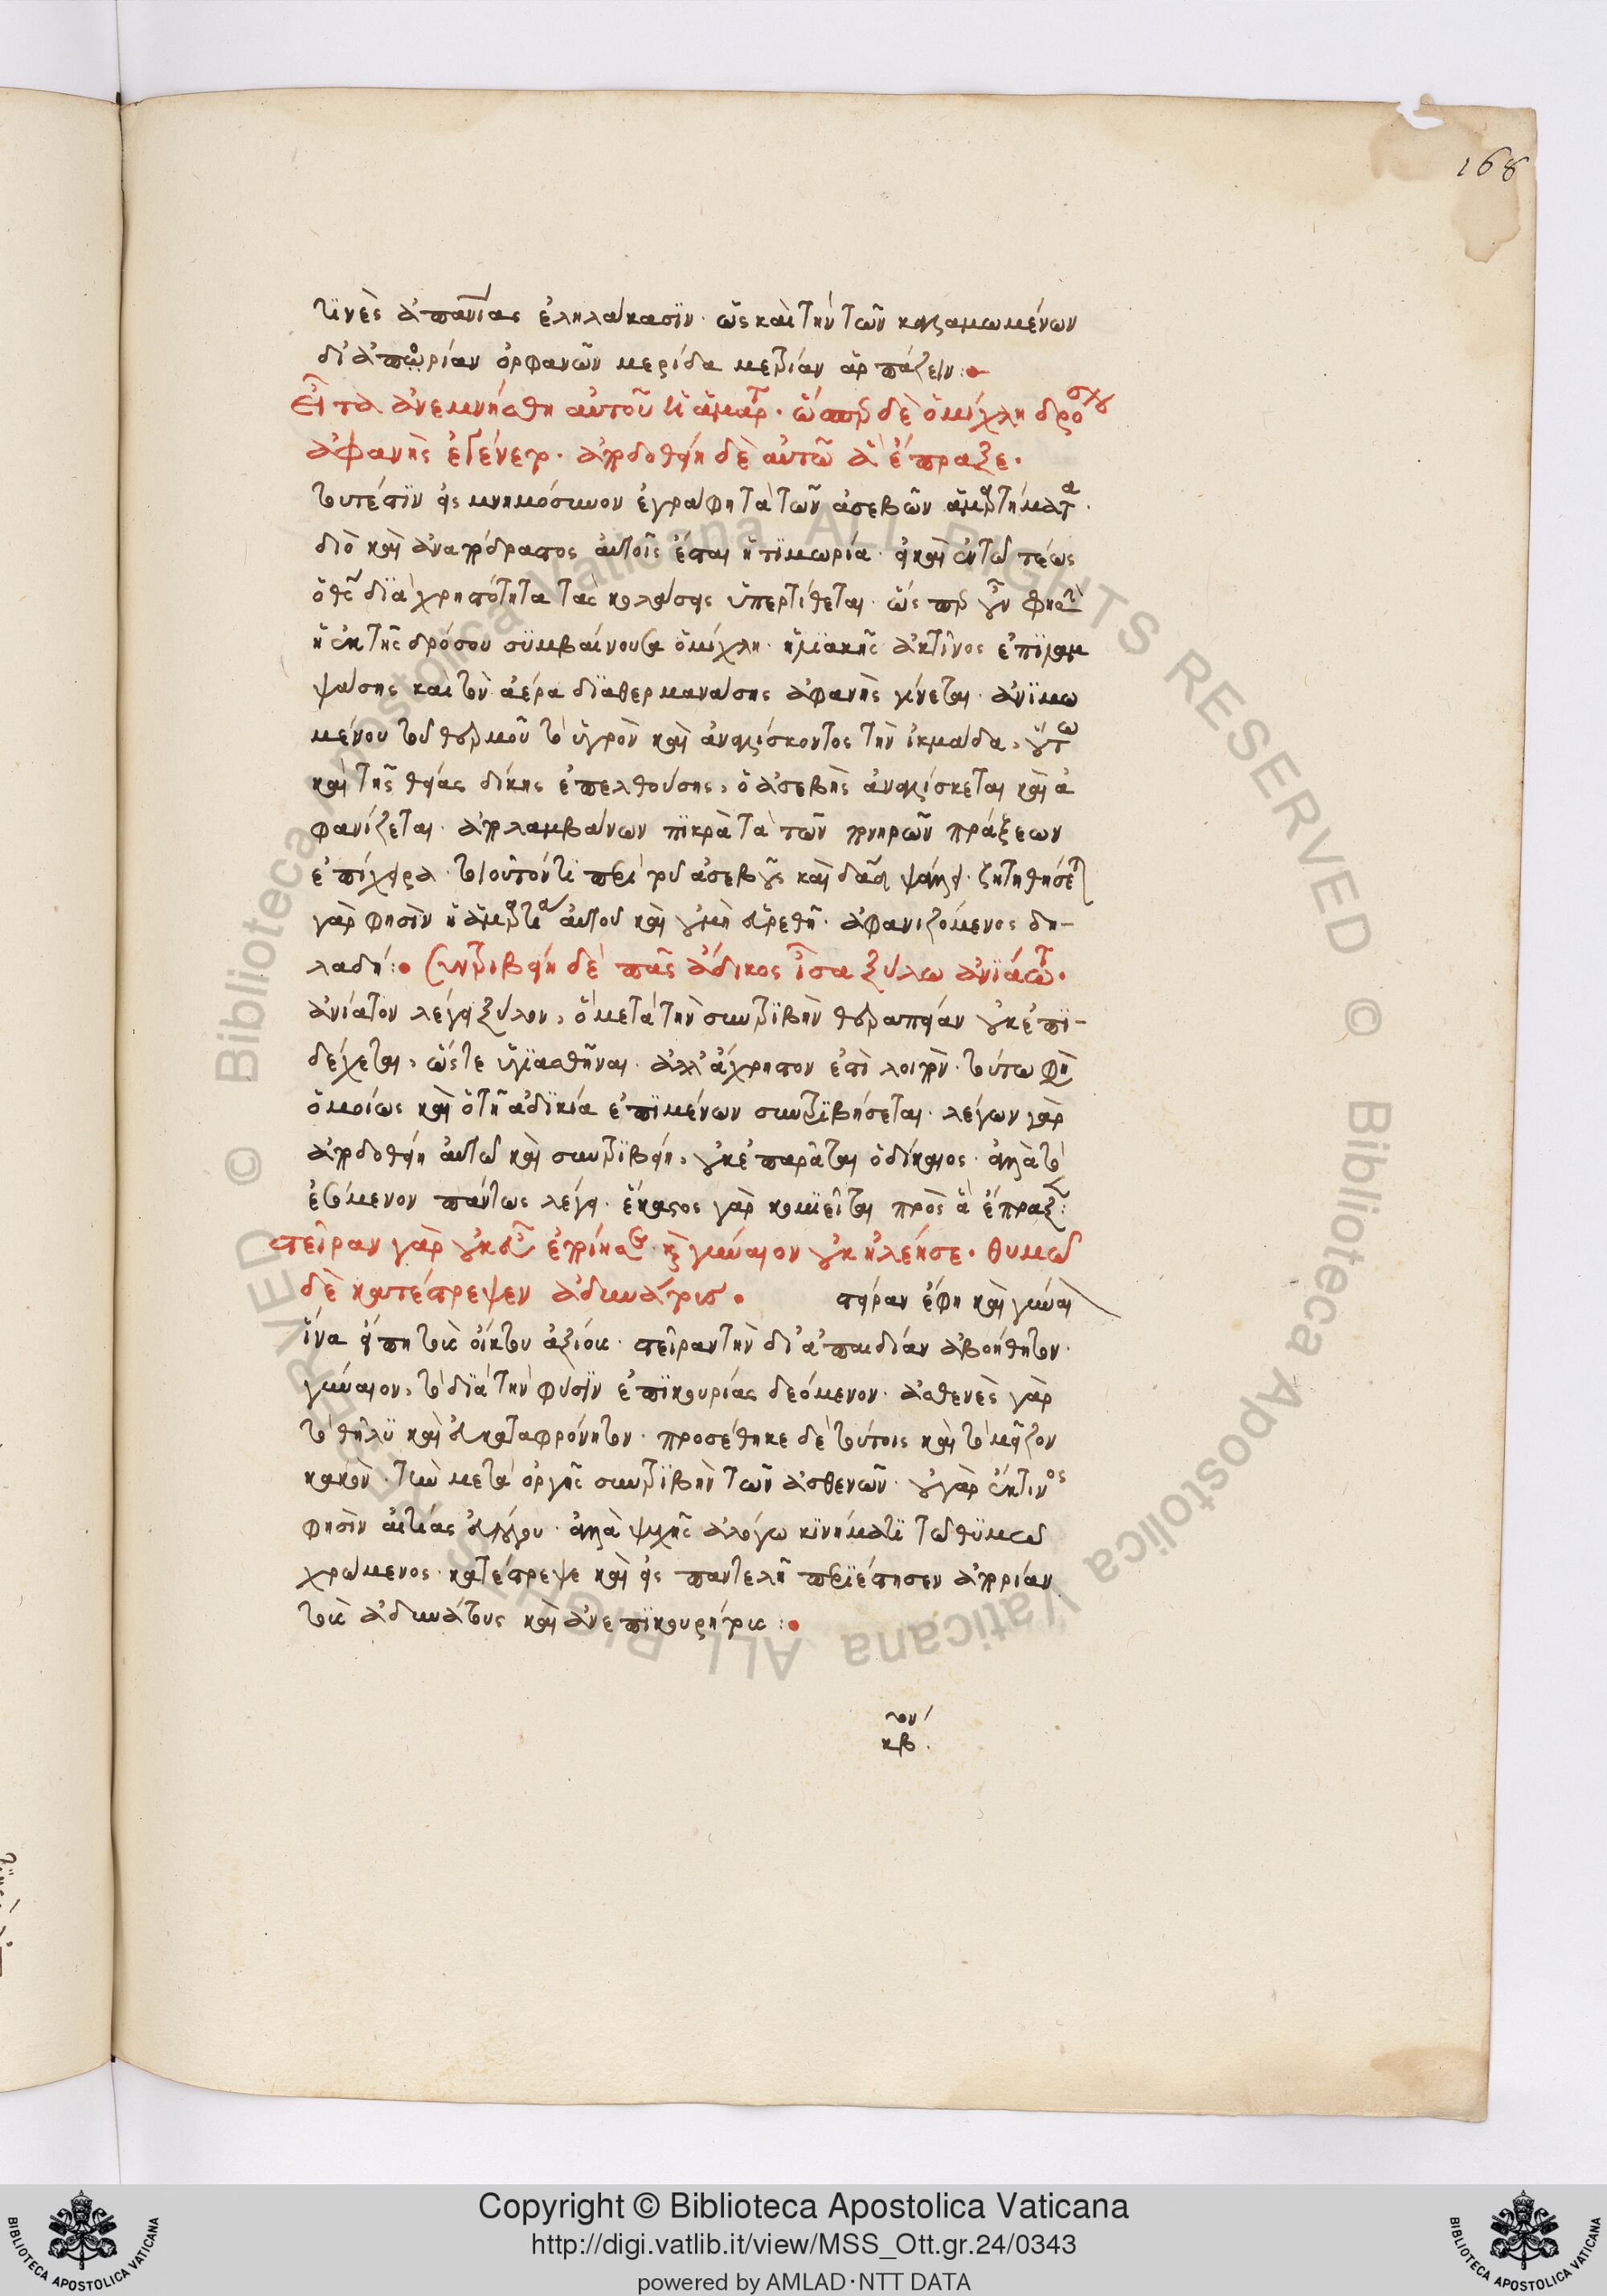 168
τινὲς ἀπανίας ἐληλάκασιν· ὡς καὶ τὴν τῶν καταμωμένων
δι' ἀπορίαν ὀρφανῶν μερίδα μετρίαν ἁρπάζειν:
εἶτα ἀνεμνήσθη αὐτοῦ ἡ ἁμαρτ· ὥσπερ δὲ ὁμίχλη δρόσου
ἀφανὴς ἐγένετο· ἀποδοθείη δὲ αὐτῶ ἃ ἔπραξε·
τουτέστιν εἰς μνημόσυνον ἐγράφη τὰ τῶν ἀσεβῶν ἁμαρτήματα·
διὸ καὶ ἀναπόδραστος αὐτοῖς ἔσται ἡ τιμωρία· εἰ καὶ ἐν τῶ τέως
ὁ θεὸς διὰ χρηστότητα τὰς κολάσεις ὑπερτίθεται· ὥσπερ οὖν φησὶ
ἡ ἐκ τῆς δρόσου συμβαίνουσα ὁμίχλη· ἡλιακῆς ἀκτῖνος ἐπιλαμ
ψάσης καὶ τὸν ἀέρα διαθερμανάσης ἀφανὴς γίνεται· ἀνιμω
μένου τοῦ θερμοῦ τὸ ὑγρὸν καὶ ἀναλίσκοντος τὴν ἰκμάδα, οὕτω
καὶ τῆς θείας δίκης ἐπελθούσης, ὁ ἀσεβὴς ἀναλίσκεται καὶ ἀ
φανίζεται· ἀπολαμβάνων πικρὰ τὰ τῶν πονηρῶν πράξεων
ἐπίχειρα· τοιοῦτόν τι περὶ τοῦ ἀσεβοῦς καὶ δαδ ψάλλει· ζητηθήσετ
γάρ φησιν ἡ ἁμαρτία αὐτοῦ καὶ οὐ μὴ εὑρεθῆ· ἀφανιζόμενος δη-
λαδή: συντριβείη δὲ πᾶς ἄδικος ἴσα ξύλω ἀνιάτω·
ἀνίατον λέγει ξύλον, ὃ μετὰ τὴν συντριβὴν θεραπείαν οὐκ ἐπι-
δέχεται, ὥστε ὑγιασθῆναι· ἀλλ' ἄχρηστον ἐστὶ λοιπόν· τούτω φη
ὁμοίως καὶ ὁ τῆ ἀδικία ἐπιμένων συντριβήσεται· λέγων γὰρ
ἀποδοθείη αὐτῶ καὶ συντριβείη, οὐκ ἐπαρᾶται ὁ δίκαιος· ἀλλὰ τὸ
ἐσόμενον πάντως λέγει· ἕκαστος γὰρ κομιεῖται πρὸς ἃ ἔπραξεν:
στεῖραν γὰρ οὐκ εὖ ἐποίησε· καὶ γύναιον οὐκ ἠλέησε· θυμῶ
δὲ κατέστρεψεν ἀδυνάτους· στεῖραν ἔφη καὶ γύναι
ἵνα εἴπη τοὺς οἴκτου ἀξίους· στεῖραν τὴν δι' ἀπαιδίαν ἀβοήθητον·
γύναιον, τὸ διὰ τὴν φύσιν ἐπικουρίας δεόμενον· ἀσθενὲς γὰρ
τὸ θῆλυ καὶ εὐκαταφρόνητον· προσέθηκε δὲ τούτοις καὶ τὸ μεῖζον
κακὸν· τὴν μετὰ ὀργῆς συντριβὴν τῶν ἀσθενῶν· οὐ γὰρ ἔκ τινος
φησὶν αἰτίας εὐλόγου· ἀλλὰ ψυχῆς ἀλόγω κινήματι τῶ θυμῶ
χρώμενος· κατέστρεψε καὶ εἰς παντελῆ περιέστησεν ἀπορίαν
τοὺς ἀδυνάτους καὶ ἀνεπικουρήτους:
τον
κβ.
Copyright © Biblioteca Apostolica Vaticana
http://digi.vatlib.it/view/MSS_Ott.gr.24/0343
powered by AMLAD·NTT DATA